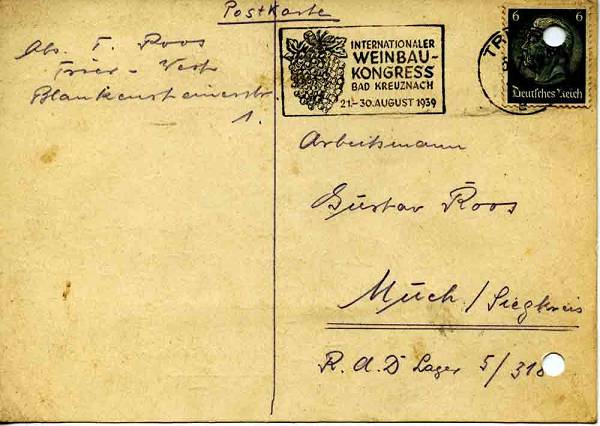 Postkarte
Abs. T. Roos
Trier - West
Blankensteinerstr.
1.
INTERNATIONALER
WEINBAU-
KONGRESS
BAD KREUZNACH
21.-30. AUGUST 1939
6 6
Deutsches Reich
Arbeitsmann
Gustav Roos
Much / Siegkreis
R. A. D Lager 5/